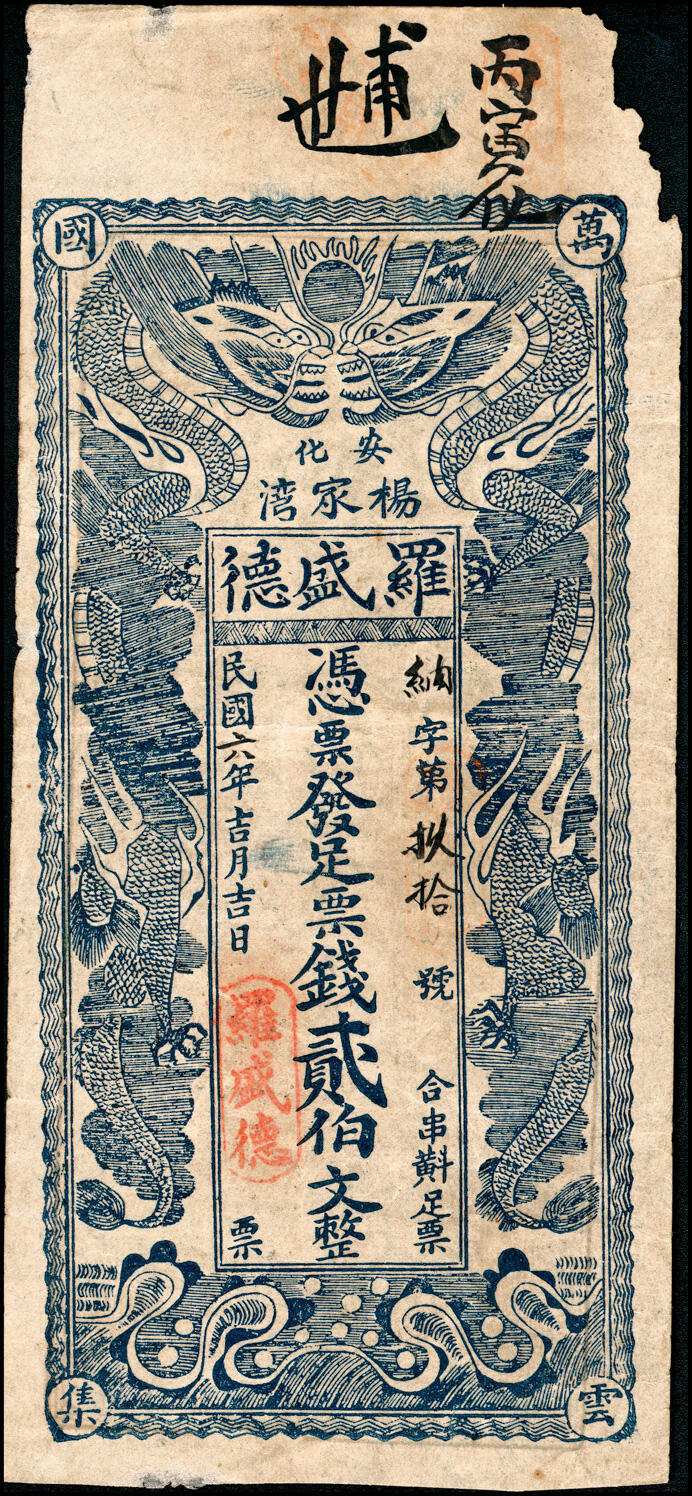 丙寅
補
萬國
雲集
安化
楊家湾
羅盛德
納字第拟拾號 合串斢足票
憑票發足票錢貳伯文整
民國六年吉月吉日 票
羅盛德